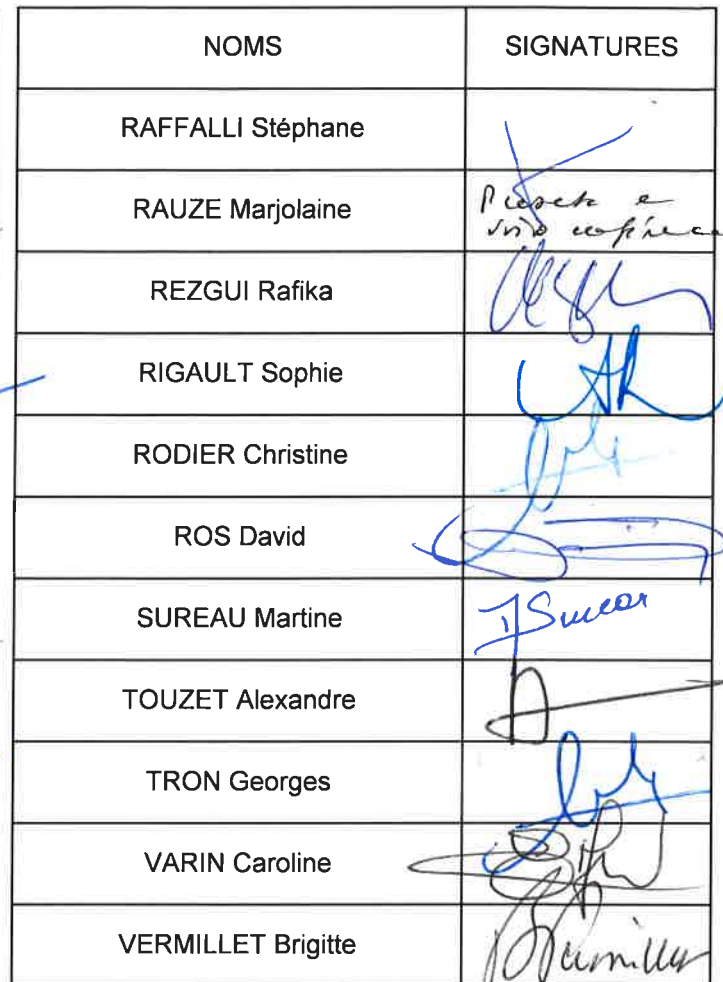 NOMS SIGNATURES
RAFFALLI Stéphane
RAUZE Marjolaine
REZGUI Rafika
RIGAULT Sophie
RODIER Christine
ROS David
SUREAU Martine
TOUZET Alexandre
TRON Georges
VARIN Caroline
VERMILLET Brigitte